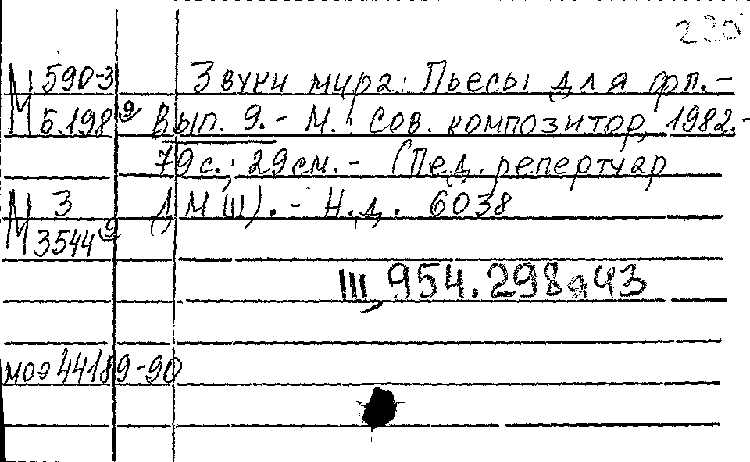 230
М 590-3 Звуки мира: Пьесы для фп.-
М 5.198 Вып. 9.- М.: Сов. композитор, 1982.-
79с.; 29см.- (Пед. репертуар
М 3 ДМШ).- Н.д. 6038
М 3544
Щ954.298я43
моэ44189-90